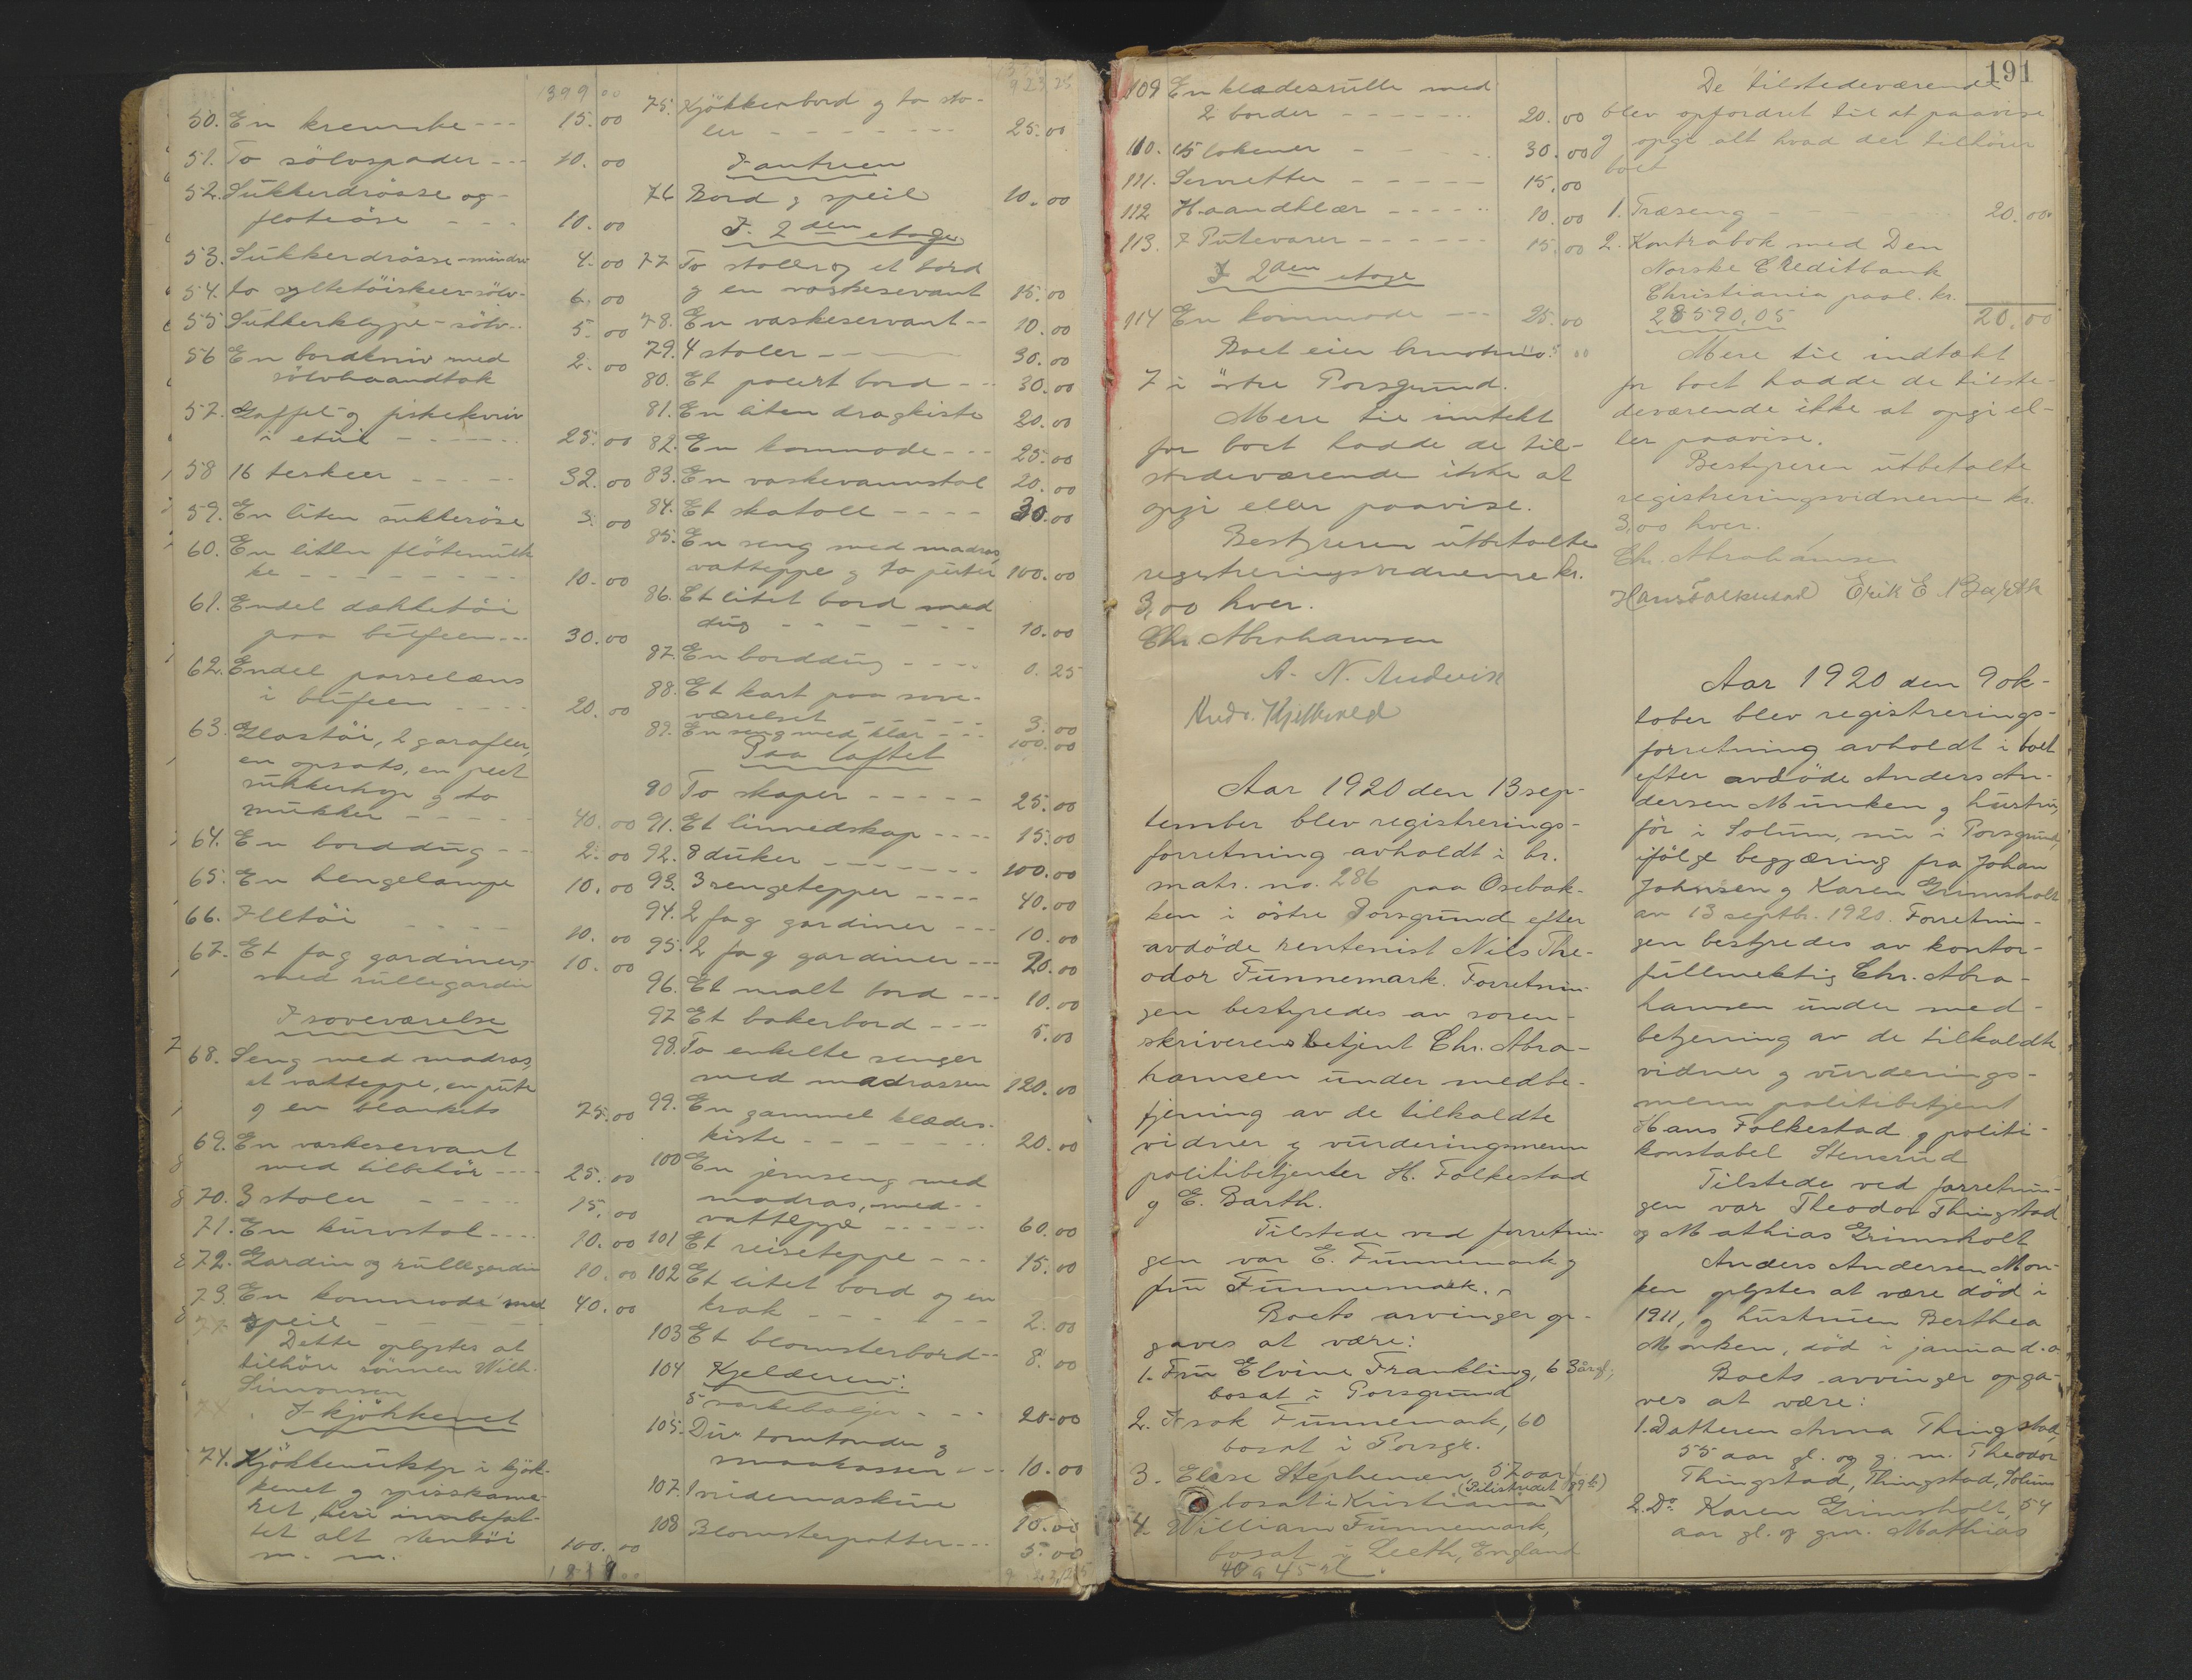 1399 00
50. En kremske --- 15.00
51. To sölvspader --- 10.00
52. Sukkerdrösse og
flöteöse --- 10.00
53. Sukkerdrösse - mindre 4.00
54. to syltetöiskeer sölv - 6.00
55 Sukkerklype - sölv - 5.00
56 En bordkniv med 2.00
sölvhaandtak
57. Gaffel og fiskekniv
i etui --- 25.00
58 16 teskeer --- 32.00
59. En liten sukkeröse 3.00
60. En liten flötemuk
ke --- 10.00
61. Endel dækketöi
paa buffeen --- 30.00
62. Endel porselæns
i buffeen --- 20.00
63. Glastöi, 2 garafler,
en opsats, en
sukkerkop og to
mukker --- 40.00
64. En borddug -- 2.00
65. En hengelampe 10.00
66. Illtöi --- 10.00
67. Et fag gardiner, 10.00
med rullegardin
I soveværelse
68. Seng med madras,
et vatteppe, en pute
og en blankets 75.00
69. En vaskeservant
med tilbehör --- 25.00
70. 3 stoler --- 15.00
71. En kurvstol --- 10.00
72. Gardin og rullegardin 10.00
73. En kommode med 40.00
speil ---
Dette oplystes at
tilhöre sönnen Wilh.
Simonsen
I kjökkenet
74. Kjökkenutstyr i kjök-
kenet og spisskame-
ret, heri innbefat-
tet alt stentöi
m. m. 100.00
75. Kjökkenbord og to sto-
ler --- 25.00
I antreen
76 Bord og speil 10.00
I. 2den etage
77 To stoler og et bord
og en vaskeservant 15.00
78. En vaskeservant -- 10.00
79. 4 stoler --- 30.00
80. Et polert bord --- 30.00
81. En liten dragkiste 20.00
82. En kommode --- 25.00
83. En vaskevannstol 20.00
84. Et skatoll --- 30.00
85. En seng med madras,
vatteppe og to puter 100.00
86. Et litet bord med
dug --- 10.00
87. En borddug --- 0.25
88. Et kart paa sove-
værelset --- 3.00
89. En seng med klær --- 100.00
Paa loftet
90 To skaper --- 25.00
91. Et linnedskap --- 15.00
92. 8 duker --- 100.00
93. 3 sengetepper --- 40.00
94. 2 fag gardiner --- 10.00
95. 2 fag gardiner --- 20.00
96. Et malt bord --- 10.00
97 Et bakerbord --- 5.00
98. To enkelte senger
med madrasser 120.00
99. En gammel klædes-
kiste --- 20.00
100 En jernseng med
madras, med
vatteppe --- 60.00
101 Et reiseteppe --- 15.00
102 Et litet bord og en
krak --- 2.00
103 Et blomsterbord -- 8.00
104 Kjelderen:
5 vaskebaljer --- 20.00
105. Div. tomtönder og
smaakasser --- 10.00
107. 1 vridemaskine 10.00
108 Blomsterpotter --- 5.00
109 En klædesrulle med
2 border --- 20.00
110. 15 lakener --- 30.00
111. Servietter --- 15.00
112 Haandklær --- 10.00
113. 7 Putevarer --- 15.00
I 2den etage
114 En kommode --- 25.00
Boet eier
7 i östre Porsgrund.
Mere til inntekt
for boet hadde de til-
stedeværende ikke at
opgi eller paavise.
Bestyreren utbetalte
registreringsvidnerne kr.
3,00 hver.
Chr. Abrahamsen
Andr. Kjellevold
Aar 1920 den 13 sep-
tember blev registrerings-
forretning avholdt i br.
matr. no. 286 paa Osebak-
ken i östre Porsgrund efter
avdöde rentenist Nils The-
odor Funnemark. Forretnin-
gen bestyredes av soren-
skriverens betjent Chr. Abra-
hamsen under medbe-
tjening av de tilkaldte
vidner og vurderingsmenn
politibetjenter H. Folkestad
og E. Barth.
Tilstede ved forretnin-
gen var E. Funnemark og
fru Funnemark.
Boets arvinger op-
gaves at være:
1. Fru Elvine Frankling, 63 år gl.,
bosat i Porsgrund
2. Isak Funnemark, 60
bosat i Porsgr.
3. Elise Stephensen, 57 aar
bosat i Kristiania
4. William Funnemark,
bosat i Leeth, England
40 a 45 år.
191
De tilstedeværende
blev opfordret til at paavise
og opgi alt hvad der tilhörer
boet
1. Træseng --- 20.00
2. Kontrabok med Den
Norske Creditbank
Christiania paal. kr.
28590,05 20.00
Mere til indtækt
for boet hadde de tilste-
deværende ikke at opgi el-
ler paavise.
Bestyreren utbetalte
registreringsvidnerne kr.
3,00 hver.
Chr. Abrahamsen
Hans Folkestad Erik E. Barth
Aar 1920 den 9 ok-
tober blev registrerings-
forretning avholdt i boet
efter avdöde Anders An-
dersen Munken og hustru,
för i Solum, nu i Porsgrund,
ifölge begjæring fra Johan
Johnsen og Karen Grimsholt
av 13 septbr. 1920. Forretnin-
gen bestyredes av kontor-
fullmektig Chr. Abra-
hamsen under med-
betjening av de tilkaldte
vidner og vurderings-
menn politibetjent
Hans Folkestad og politi-
konstabel Stenerud
Tilstede ved forretnin-
gen var Theodor Thingstad
og Mathias Grimsholt
Anders Andersen Mon-
ken oplystes at være död i
1911, og hustruen Berthea
Monken, död i januar d.a.
Boets arvinger opga-
ves at være:
1. Datteren Anna Thingstad,
55 aar gl. og g. m. Theodor
Thingstad, Thingstad, Solum
2. Do Karen Grimsholt, 54
aar gl. og gm. Mathias